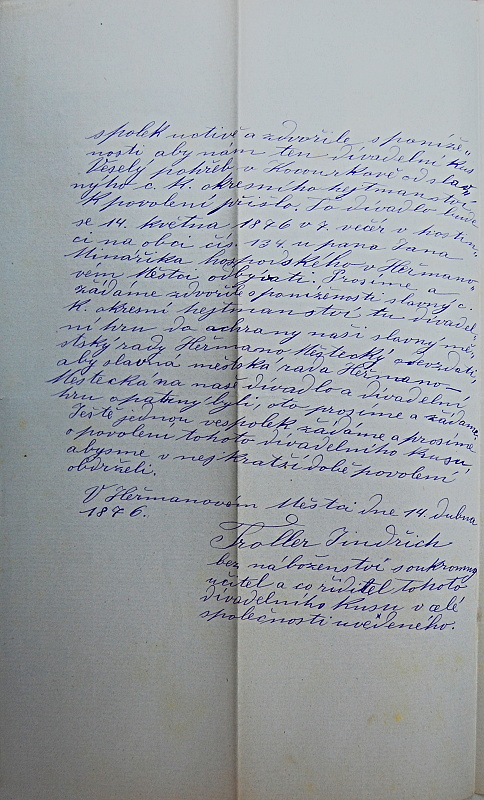 spolek uctivě a zdvořile s poníže-
nosti aby nám ten divadelní kus
Veselý pohřeb v Kocourkově od slav-
nýho c. k. okresního hejtmanství
k povolení přišlo. To divadlo bude
se 14. května 1876 v 7. večer v hostin-
ci na obci čís. 134. u pana Jana
Minaříka hospodského v Heřmano-
vém Městci odbývati. Prosíme a
žádáme zdvořile s poníženosti slavný c.
k. okresní hejtmanství tu divadel-
ní hru do achrany naši slavný mě-
stský rady Heřmano Městecký odevzdati,
aby slavná mestska rada Heřmano-
Městecka na naše divadlo a divadelní
hru opatrný byli, oto prosíme a žádáme.
Ještě jednou vespolek žádáme a prosíme
o povolení tohoto divadelního kusu,
abysme v nejkratší době povolení
obdrželi.
V Heřmanovém Městci dne 14. dubna
1876.
Troller Jindřich
bez náboženství soukromny
učitel a co řiditel tohoto
divadelního kusu v celé
společnosti uvedeného.